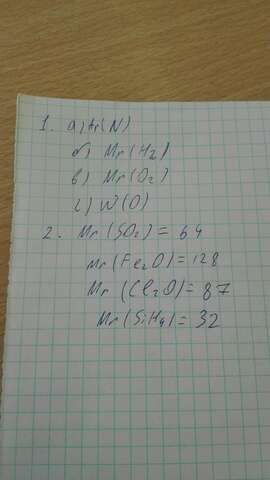 1. а) Ar(N)
б) Mr(H2)
в) Mr(O2)
г) W(O)
2. Mr(SO2) = 64
Mr(Fe2O) = 128
Mr(Cl2O) = 87
Mr(SiH4) = 32